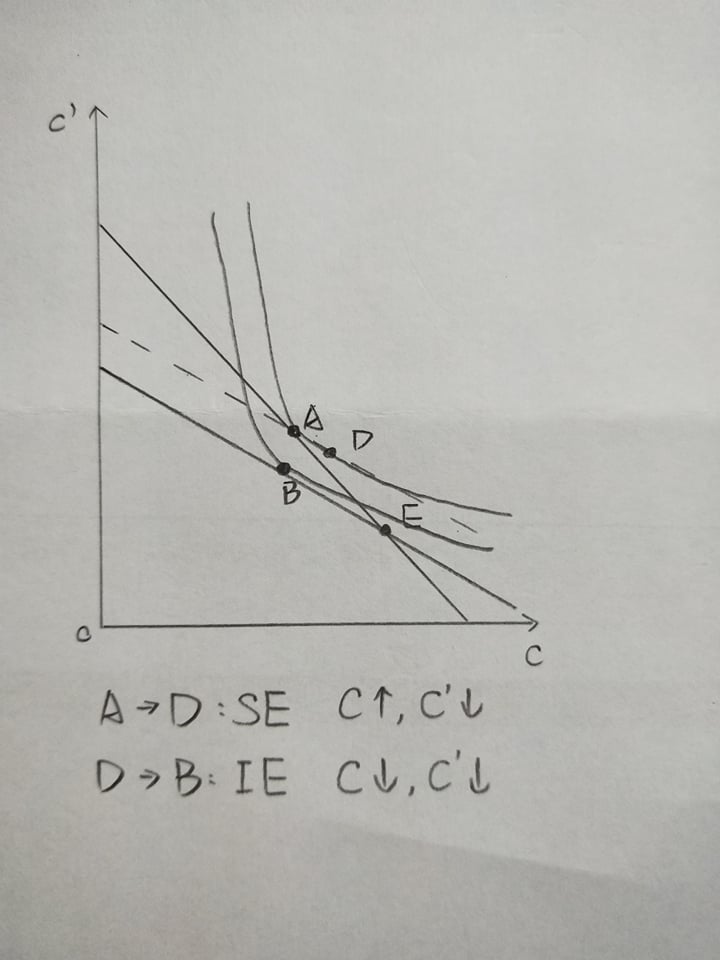 C'
A
D
B
E
O
C
A → D : SE C↑, C'↓
D → B : IE C↓, C'↓